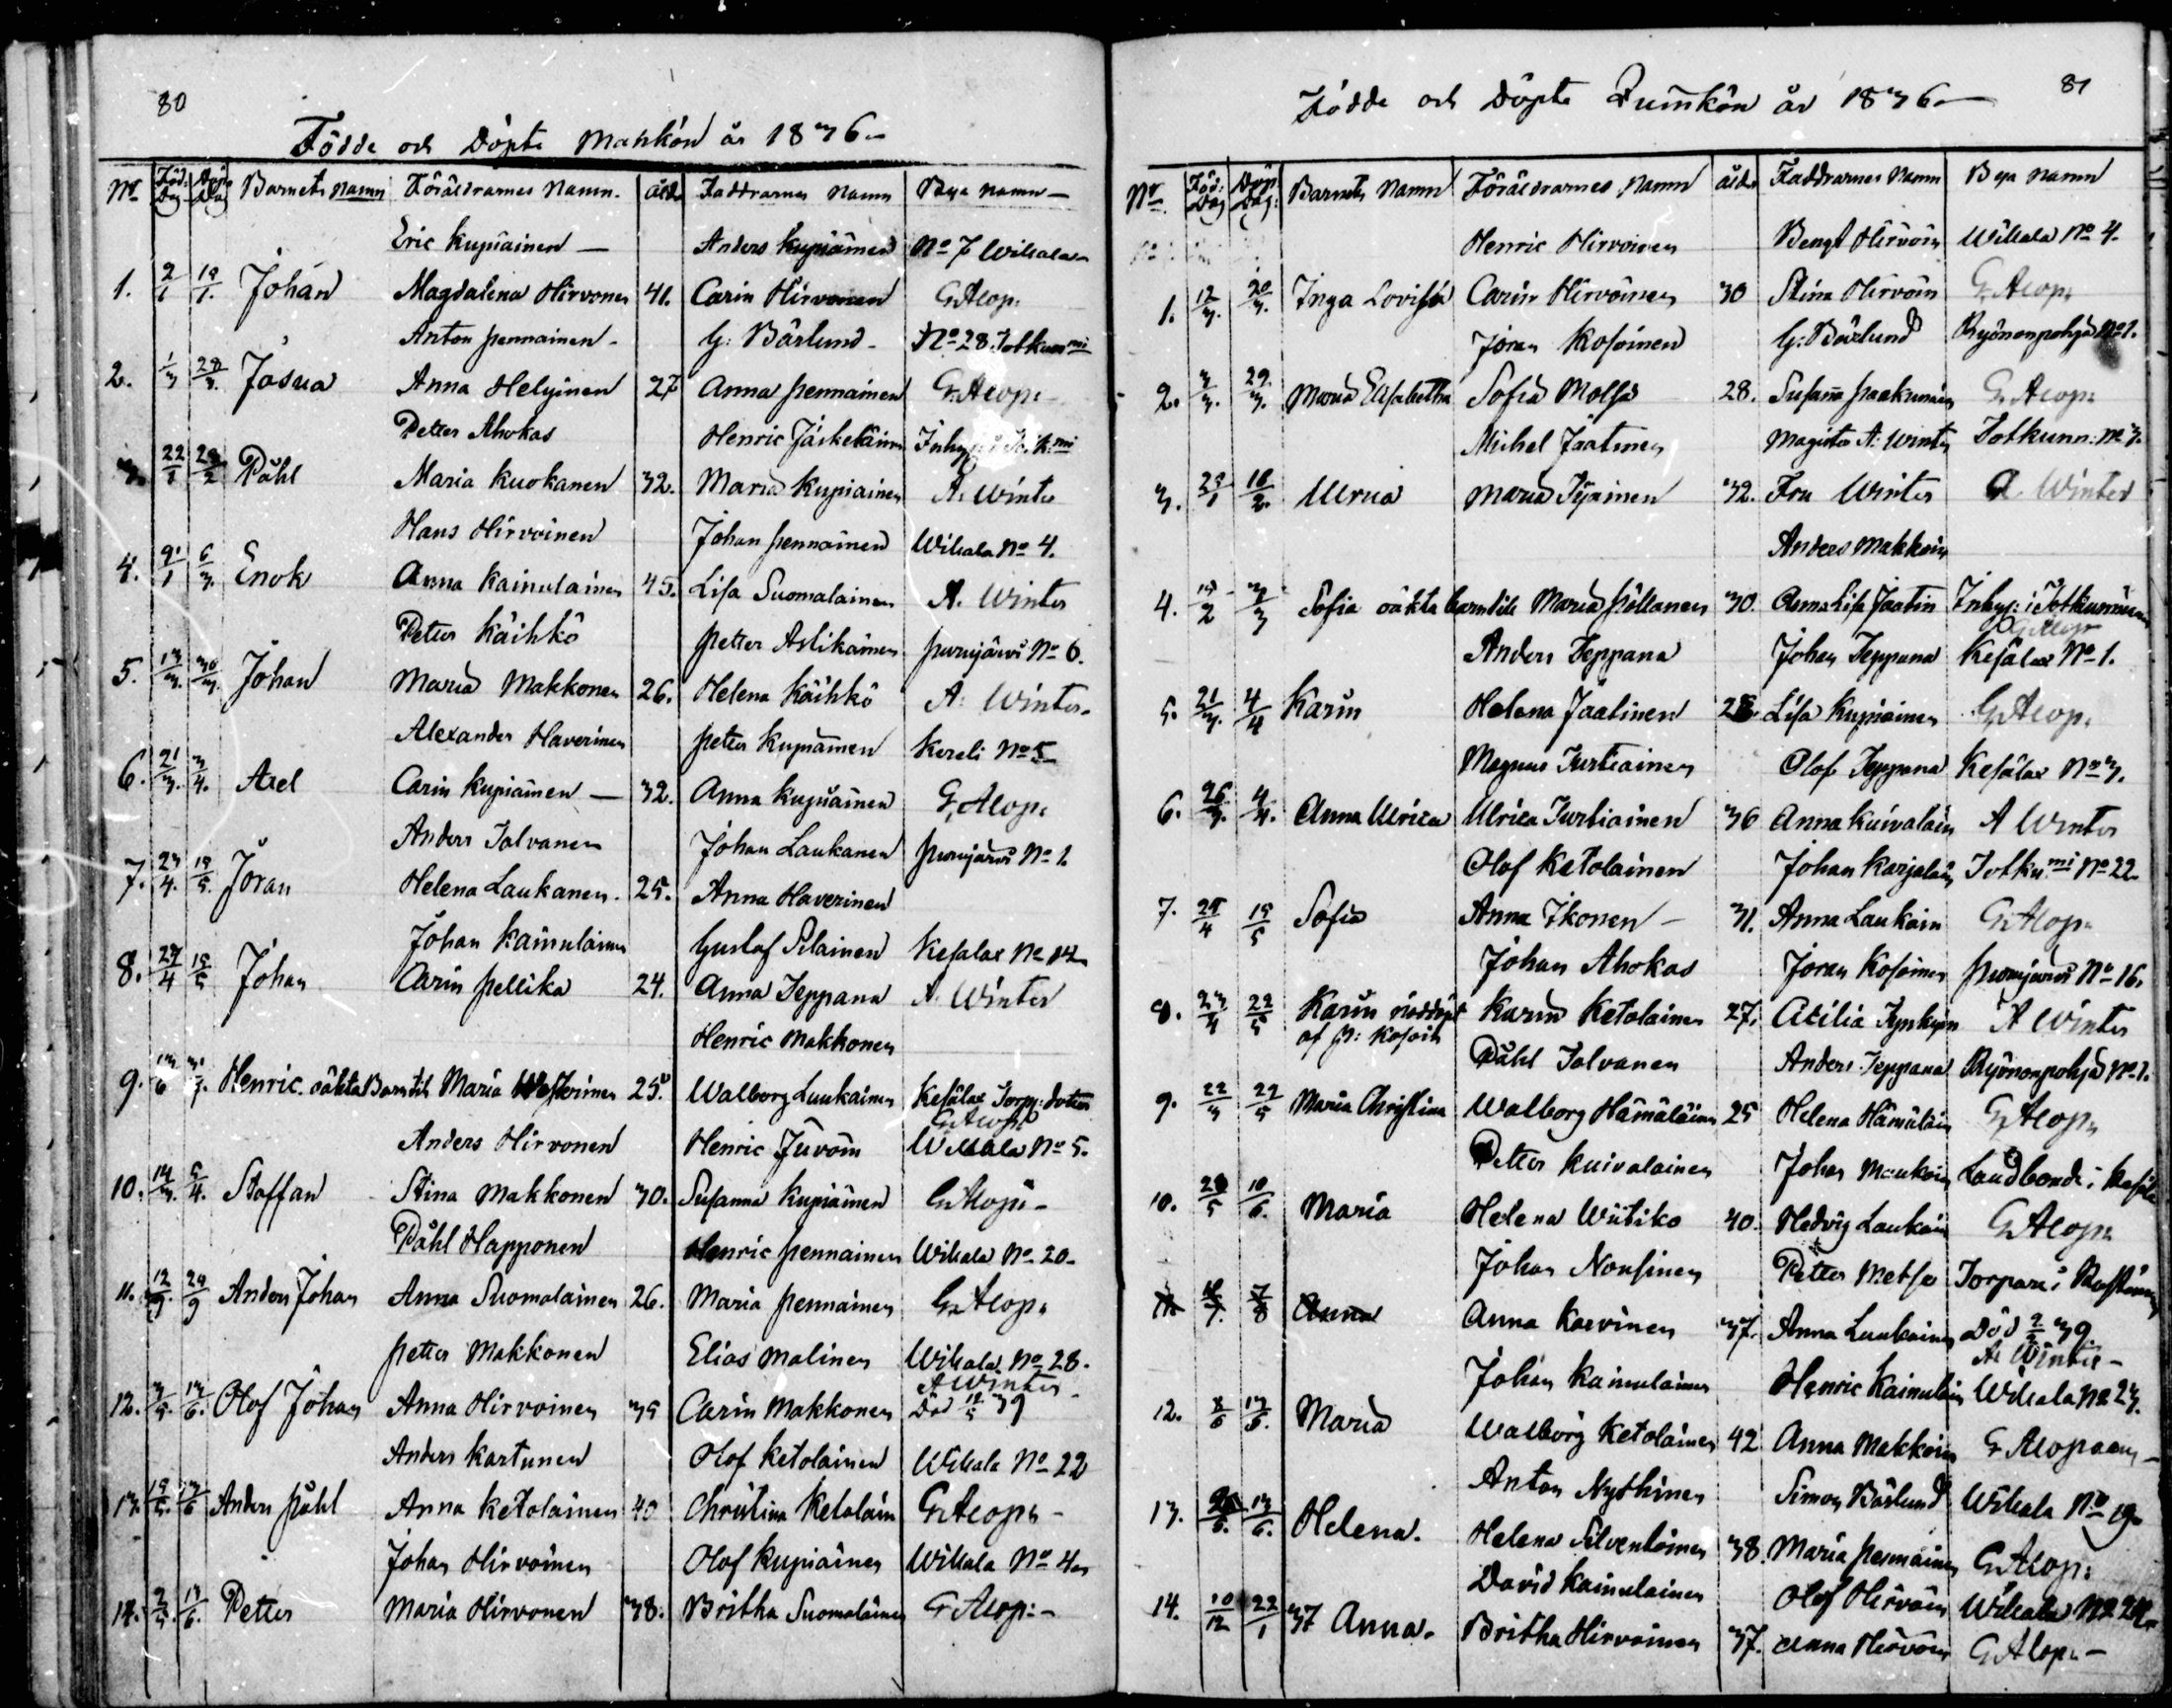 80
Födde och Döpte Mankön år 1836
No Föd: Dag Döp: Dag Barnets namn Föräldrarnes Namn Åld Faddrarnes namn Byn namn
Eric Kupiainen Anders Kupiainen No 7 Wihala
1. 2/1 19/1. Johan Magdalena Hirvonen 41. Carin Hirvonen G. Alop:
Anton Pennainen G: Bärlund No 28 Totkunmi
2. 1/3 28/3. Josua Anna Helyinen 27 Anna Pennainen G. Alop:
Petter Ahokas Henric Jäskeläinen
22/1 Påhl Maria Kuokanen 32. Maria Kupiainen A. Winter
Hans Hirvoinen Johan Pennainen Wihala No 4.
4. 6/3. Enok Anna Kainulainen 45. Lisa Suomalainen A. Winter
Petter Käihkö Petter Asikainen Purujärvi No 6.
5. 13/3. 30/3. Johan Maria Makkonen 26. Helena Käihkö A: Winter
Alexander Haverinen Petter Kupiainen Kereli No 5
6. 21/3. 3/4. Axel Carin Kupiainen 32. Anna Kupiainen G. Alop:
Anders Jalvanen Johan Laukanen Purujärvi No 1.
7. 23/4. 19/5. Jöran Helena Laukanen 25. Anna Haverinen
Johan Kainulainen Gustaf Silainen Kesalax No 14
8. 27/4 15/5 Johan Carin Pellika 24. Anna Teppana A. Winter
Henric Makkonen
9. Henric oäkta Barn till Maria 25. Walborg Luukainen Kesälax Torp: dotter
G. Alop:
Anders Hirvonen Henric Juvoin Wihala No 5.
10. 14/3. 5/4. Staffan Stina Makkonen 30. Susanna Kupiainen G. Alop:
Påhl Happonen Henric Pennainen Wihala No 20
11. 12/9. 29/9 Anders Johan Anna Suomalainen 26. Maria Pennainen G. Alop:
Petter Makkonen Elias Malinen Wihala No 28.
A Winter
12. 3/5. 13/6. Olof Johan Anna Hirvoinen 35 Carin Makkonen Död 12/5 39
Anders Kartunen Olof Ketolainen Wihala No 22
13. 13/6 Anders Påhl Anna Ketolainen 40 Christina Ketolain G. Alop:
Johan Hirvoinen Olof Kupiainen Wihala No 4
14. 2/5. 13/6. Petter Maria Hirvonen 38. Britha Suomalainen G. Alop:
81
Födde och Döpte Quinkön år 1836
No Föd: Dag Döp: Dag: Barnets Namn Föräldrarnes Namn ålder Faddrarnes Namn Byn namn
Henric Hirvoinen Bengt Hirvoin Wihala No 4.
1. 12/3. 20/3. Inga Lovisa Carin Hirvoinen 30 Stina Hirvoin G. Alop:
Jöran Kosoinen G: Bärlund Ryönonpohja No 1.
2. 3/3. 29/3. Maria Elisabetha Sofia Molsa 28. Susana Paakunain G. Alop:
Michel Jaatinen Magister A: Winter Totkunn: No 3.
3. 18/2. Ulrica Maria Ijäinen 32. Fru Winter A. Winter
Anders Makkoin
4. 19/2 3/3 Sofia oäkta barn till Maria Pöllanen 30. Anna Lisa Jaatin Inhys: i Totkunniemi
G. Alop:
Anders Teppana Johan Teppana Kesälax No 1.
5. 21/3. 4/4 Karin Helena Jaatinen 28. Lisa Kupiainen G. Alop:
Magnus Turtiainen Olof Teppana Kesälax No 3.
6. 26/3. 4/4. Anna Ulrica Ulrica Turtiainen 36 Anna Kuivalain A Winter
Olof Ketolainen Johan Karjalain Totkumi No 22
7. 25/4 15/5 Sofia Anna Ikonen 31. Anna Laukain G. Alop:
Johan Ahokas Jöran Kosoinen Purujärvi No 16.
8. 23/4 22/5 Karin nöddöpt Karin Ketolainen 27. Cecilia Tynkyin A Winter
af J: Kosoin
Påhl Jalvanen Anders Teppana Ryönonpohja No 1.
9. 22/4 22/5 Maria Christina Walborg Hämäläinen 25 Helena Hämäläin G. Alop:
Petter Kuivalainen Johan Maukoin Landbonde i Kesäla
10. 10/6. Maria Helena Wiitiko 40. Hedvig Laukain G. Alop:
Johan Nousinen Petter Metso Torpare i
11. 7/8 Anna Anna Karvinen 37. Anna Luukainen Död 2/3 39.
A. Winter
Johan Kainulainen Henric Kainulain Wihala No 23.
12. 8/6 13/6. Maria Walborg Ketolainen 42 Anna Makkoin G. Alopaeus
Anton Nythinen Simon Bärlund Wihala No 19
13. 13/6. Helena. Helena Silventoinen 38. Maria Pennainen G. Alop:
David Kainulainen Olof Hirvoin Wihala No 24
14. 10/12 22/1 37 Anna. Britha Hirvoinen 37. Anna Hirvoin G. Alop: